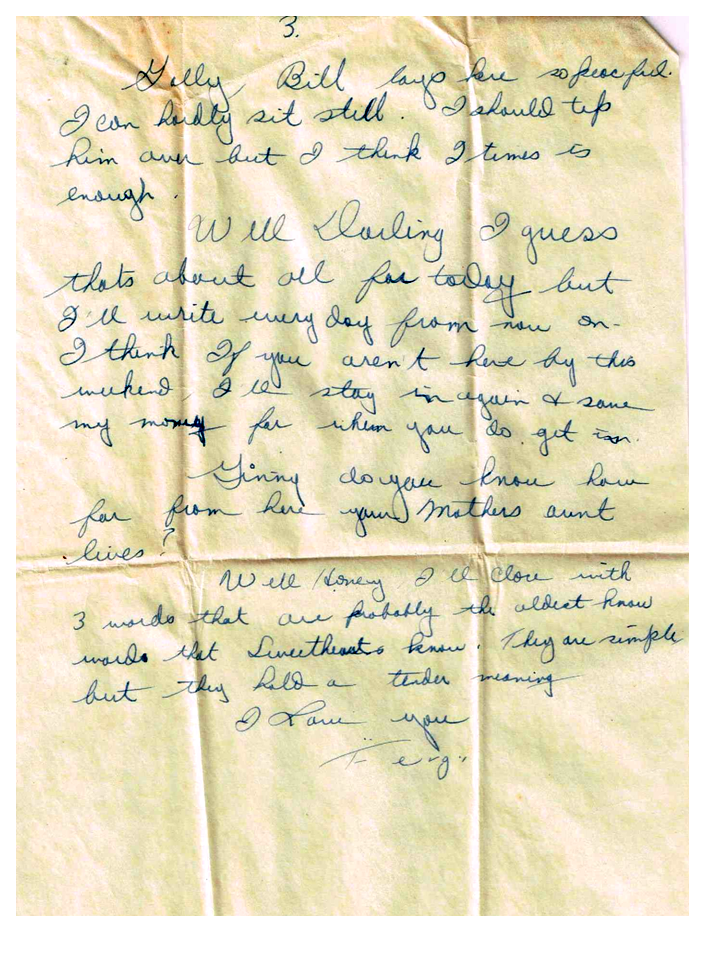 3.
Golly, Bill lays here so peaceful.
I can hardly sit still. I should tip
him over but I think 2 times is
enough.
Well Darling I guess
thats about all for today but
I'll write every day from now on-
I think If you aren't here by this
weekend, I'll stay in again & save
my money for when you do get
Ginny do you know how
far from here your Mothers aunt
lives?
Well Honey I'll close with
3 words that are probably the oldest know
words that Sweethearts know. They are simple
but they hold a tender meaning
I Love you